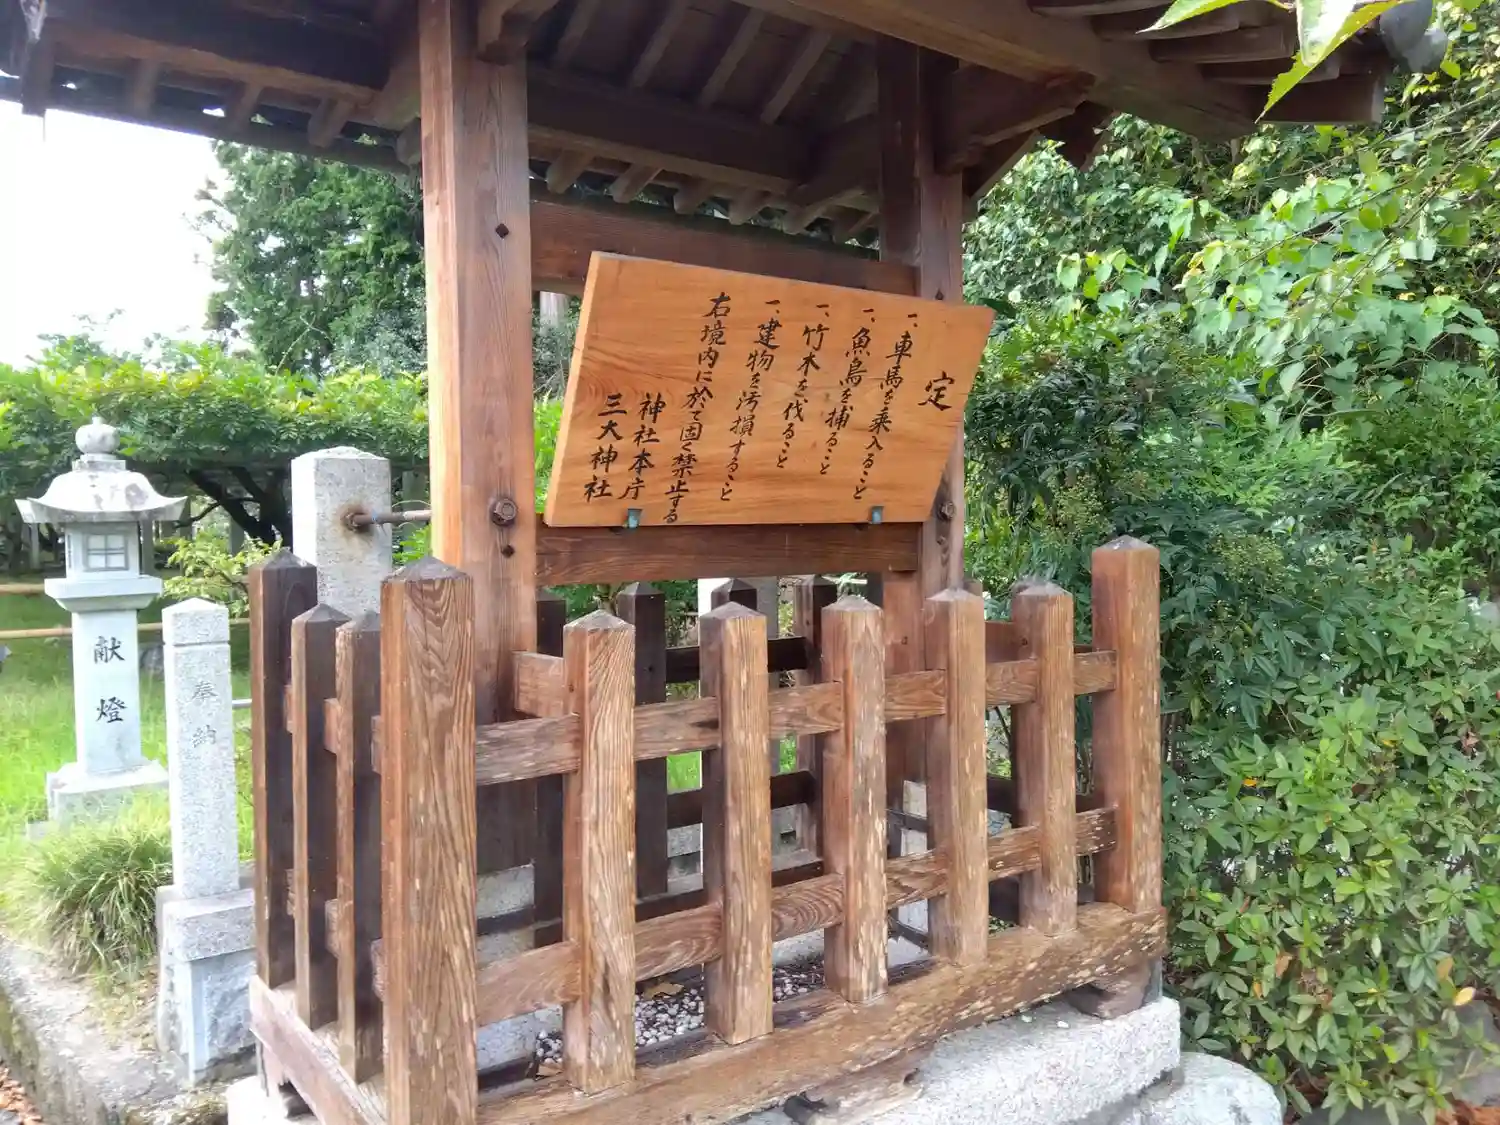 定
一、車馬を乗入ること
一、魚鳥を捕ること
一、竹木を伐ること
一、建物を汚損すること
右境内に於て固く禁止する
神社本庁
三大神社
献燈
奉納